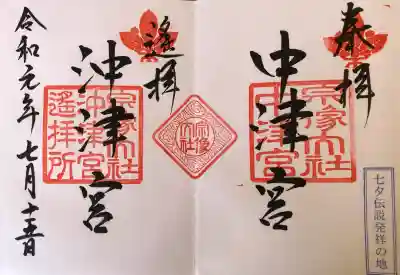 奉拝
中津宮
宗像大社
中津宮
七夕伝説発祥の地
遙拝
沖津宮
宗像大社
沖津宮
遙拝所
令和元年七月十五日